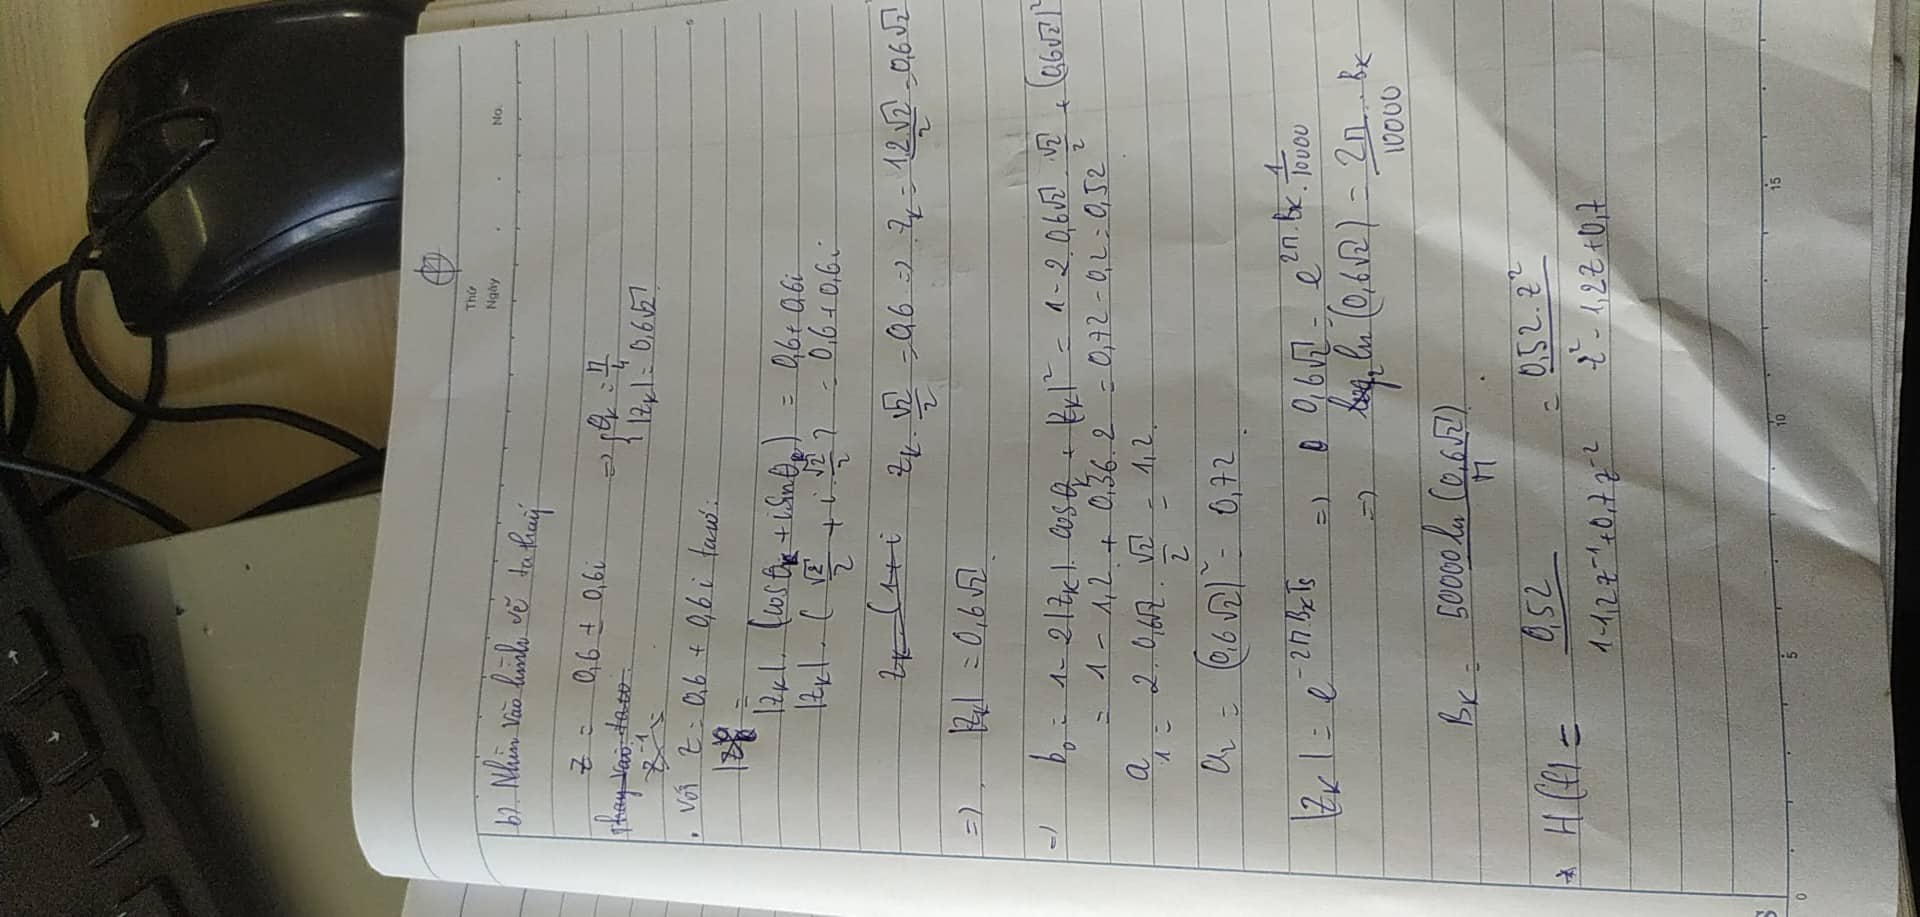 Thứ
Ngày
No.
b) Nhìn vào hình vẽ ta thấy
z = 0,6 ± 0,6i => { θk = π/4
|zk| = 0,6√2
Thay vào ta có
z^-1 =
. Với z = 0,6 + 0,6i ta có:
|zk| . (cosθk + i sinθk) = 0,6 + 0,6i
|zk| . (√2/2 + i . √2/2) = 0,6 + 0,6i
zk (1+i zk . √2/2 = 0,6 => zk = 1,2√2/2 = 0,6√2
=> |zk| = 0,6√2
=> b0 = 1 - 2|zk| . cosθk + |zk|² = 1 - 2 . 0,6√2 . √2/2 + (0,6√2)²
= 1 - 1,2 + 0,36 . 2 = 0,72 - 0,2 = 0,52
a1 = 2 . 0,6√2 . √2/2 = 1,2
a2 = (0,6√2)² = 0,72
|zk| = e^-2πBkTs => 0,6√2 = e^2π.Bk.1/10000
=> ln(0,6√2) = 2π/10000 . Bk
Bk = 50000 ln(0,6√2)/π
* H(f) = 0,52/(1-1,2z^-1+0,7z^-2) = 0,52.z²/(z² - 1,2z + 0,7)
0 5 10 15